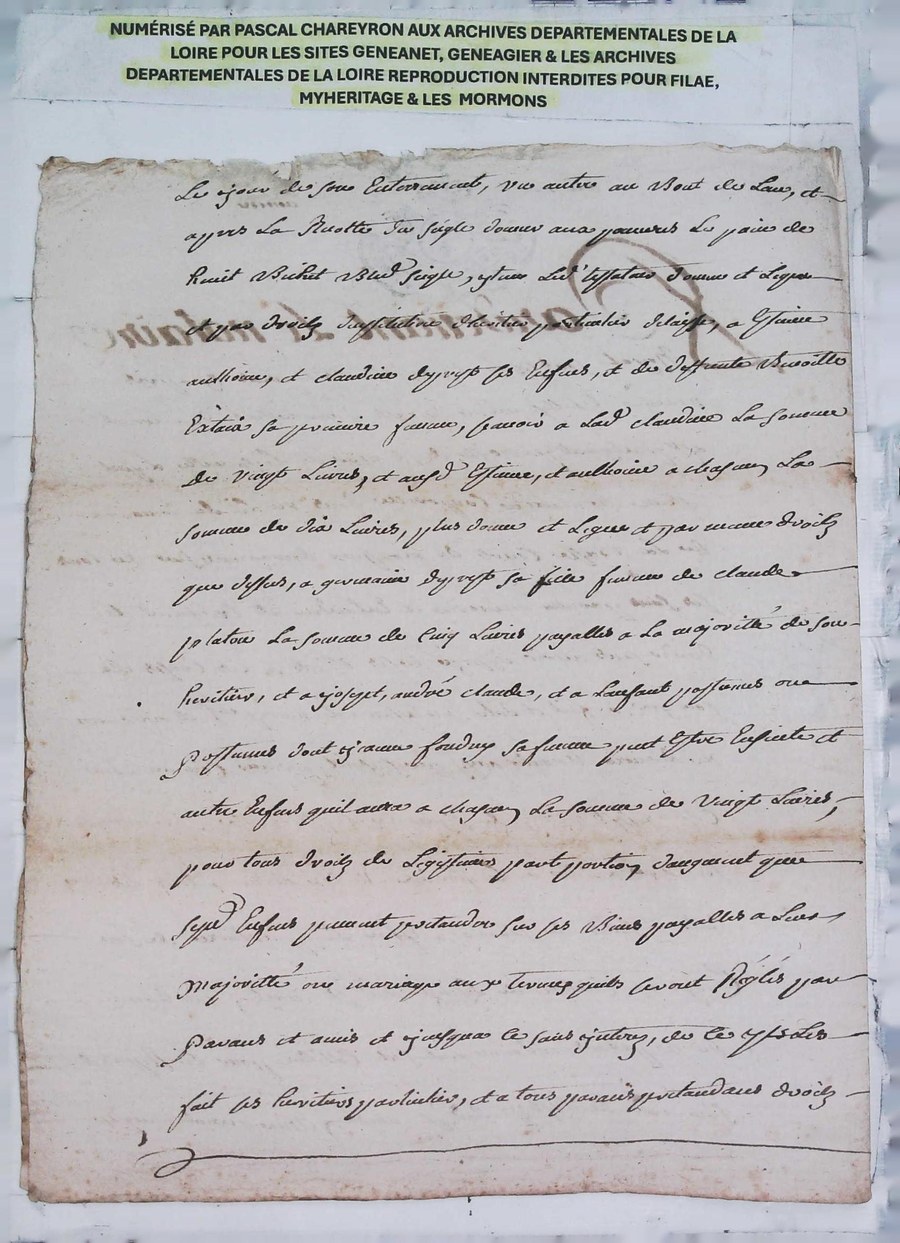 NUMÉRISÉ PAR PASCAL CHAREYRON AUX ARCHIVES DEPARTEMENTALES DE LA
LOIRE POUR LES SITES GENEANET, GENEAGIER & LES ARCHIVES
DEPARTEMENTALES DE LA LOIRE REPRODUCTION INTERDITES POUR FILAE,
MYHERITAGE & LES MORMONS
Le jour de son Enterrement, une autre au Bout de Lan, et
apres La Recolte du segle donner aux pauvres Le pain de
huict Bichet segle, Led testateur donne et Legue
et par droit dinstitution dheritier particulier delaisse, a Estienne
anthoine, et claudine ses Enfans, et de deffunte
sa premiere femme, scavoir a Lad claudine La somme
de vingt Livres, et ausd Estienne, et anthoine a chascun La
somme de dix Livres, plus donne et Legue et par meme droits
que dessus, a germaine sa fille femme de claude
platon La somme de Cinq Livres payables a La majoritté de son
heritier, et a josept, andré claude, et a Lanfant postumes ou
Postumes dont janne sa femme peut Estre Enceinte et
autre Enfans quil aura a chascun La somme de Vingt Livres,
pour tous droits de Legitimes part portion daugment que
sesd Enfans peuvent pretandre sur ses Biens payables a Leur
majoritté ou mariage aux termes quils seront Réglés par
Parans et amis et jusques a ce sans jnterez, de ce Les
fait ses heritiers particulier, et a tous parans pretandans droits